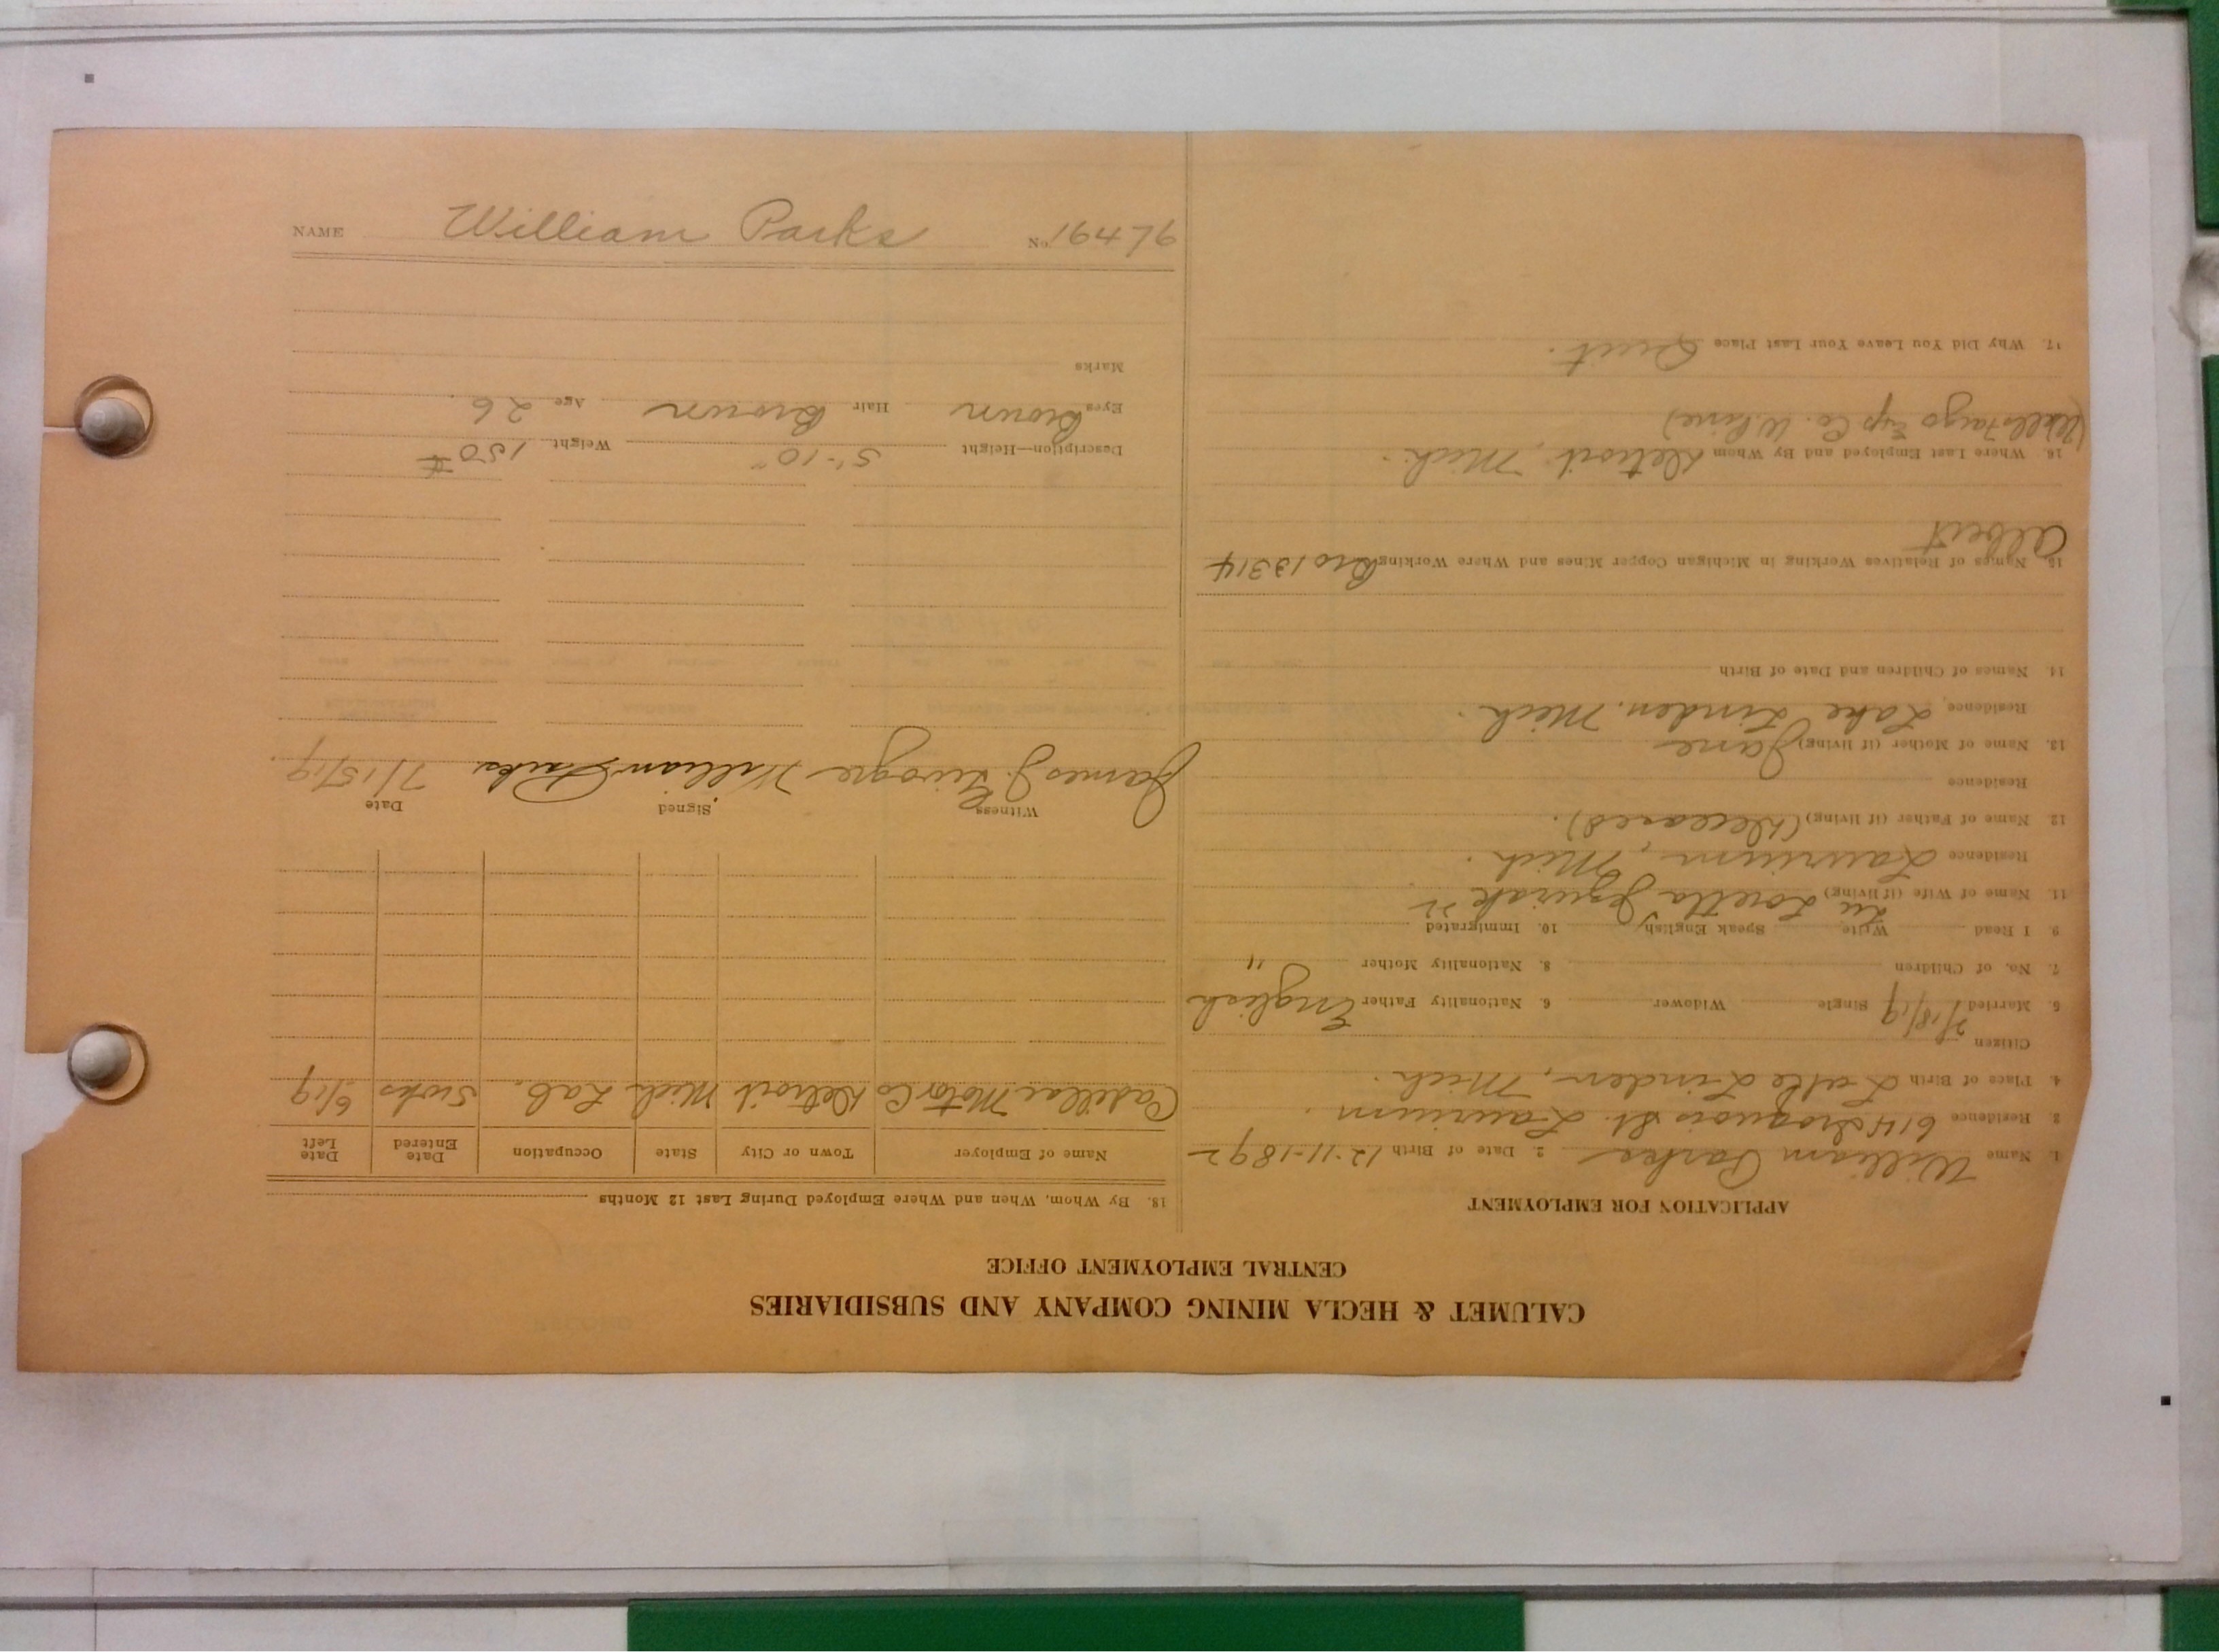 CALUMET & HECLA MINING COMPANY AND SUBSIDIARIES
CENTRAL EMPLOYMENT OFFICE
APPLICATION FOR EMPLOYMENT
1. Name William Parks 2. Date of Birth 12-11-1892
3. Residence 614 Iroquois St. Laurium.
4. Place of Birth Lake Linden, Mich.
Citizen
5. Married 2/18/19 Single Widower 6. Nationality Father English
7. No. of Children 8. Nationality Mother "
9. I Read Write Speak English 10. Immigrated
11. Name of Wife (if living) Loretta 22
Residence Laurium, Mich.
12. Name of Father (if living) (Deceased).
Residence
13. Name of Mother (if living) Jane
Residence, Lake Linden, Mich.
14. Names of Children and Date of Birth
15. Names of Relatives Working in Michigan Copper Mines and Where Working Bro 13314
Albert
16. Where Last Employed and By Whom Detroit, Mich.
(Wells Fargo Exp Co.
17. Why Did You Leave Your Last Place Quit.
18. By Whom, When and Where Employed During Last 12 Months
Name of Employer Town or City State Occupation Date Entered Date Left
Cadillac Motor Co Detroit Mich Lab. 5wks 6/19
Witness Signed Date
James J. William Parks 7/15/19.
Description—Height 5'-10" Weight 150 #
Eyes Brown Hair Brown Age 26
Marks
NAME William Parks No. 16476